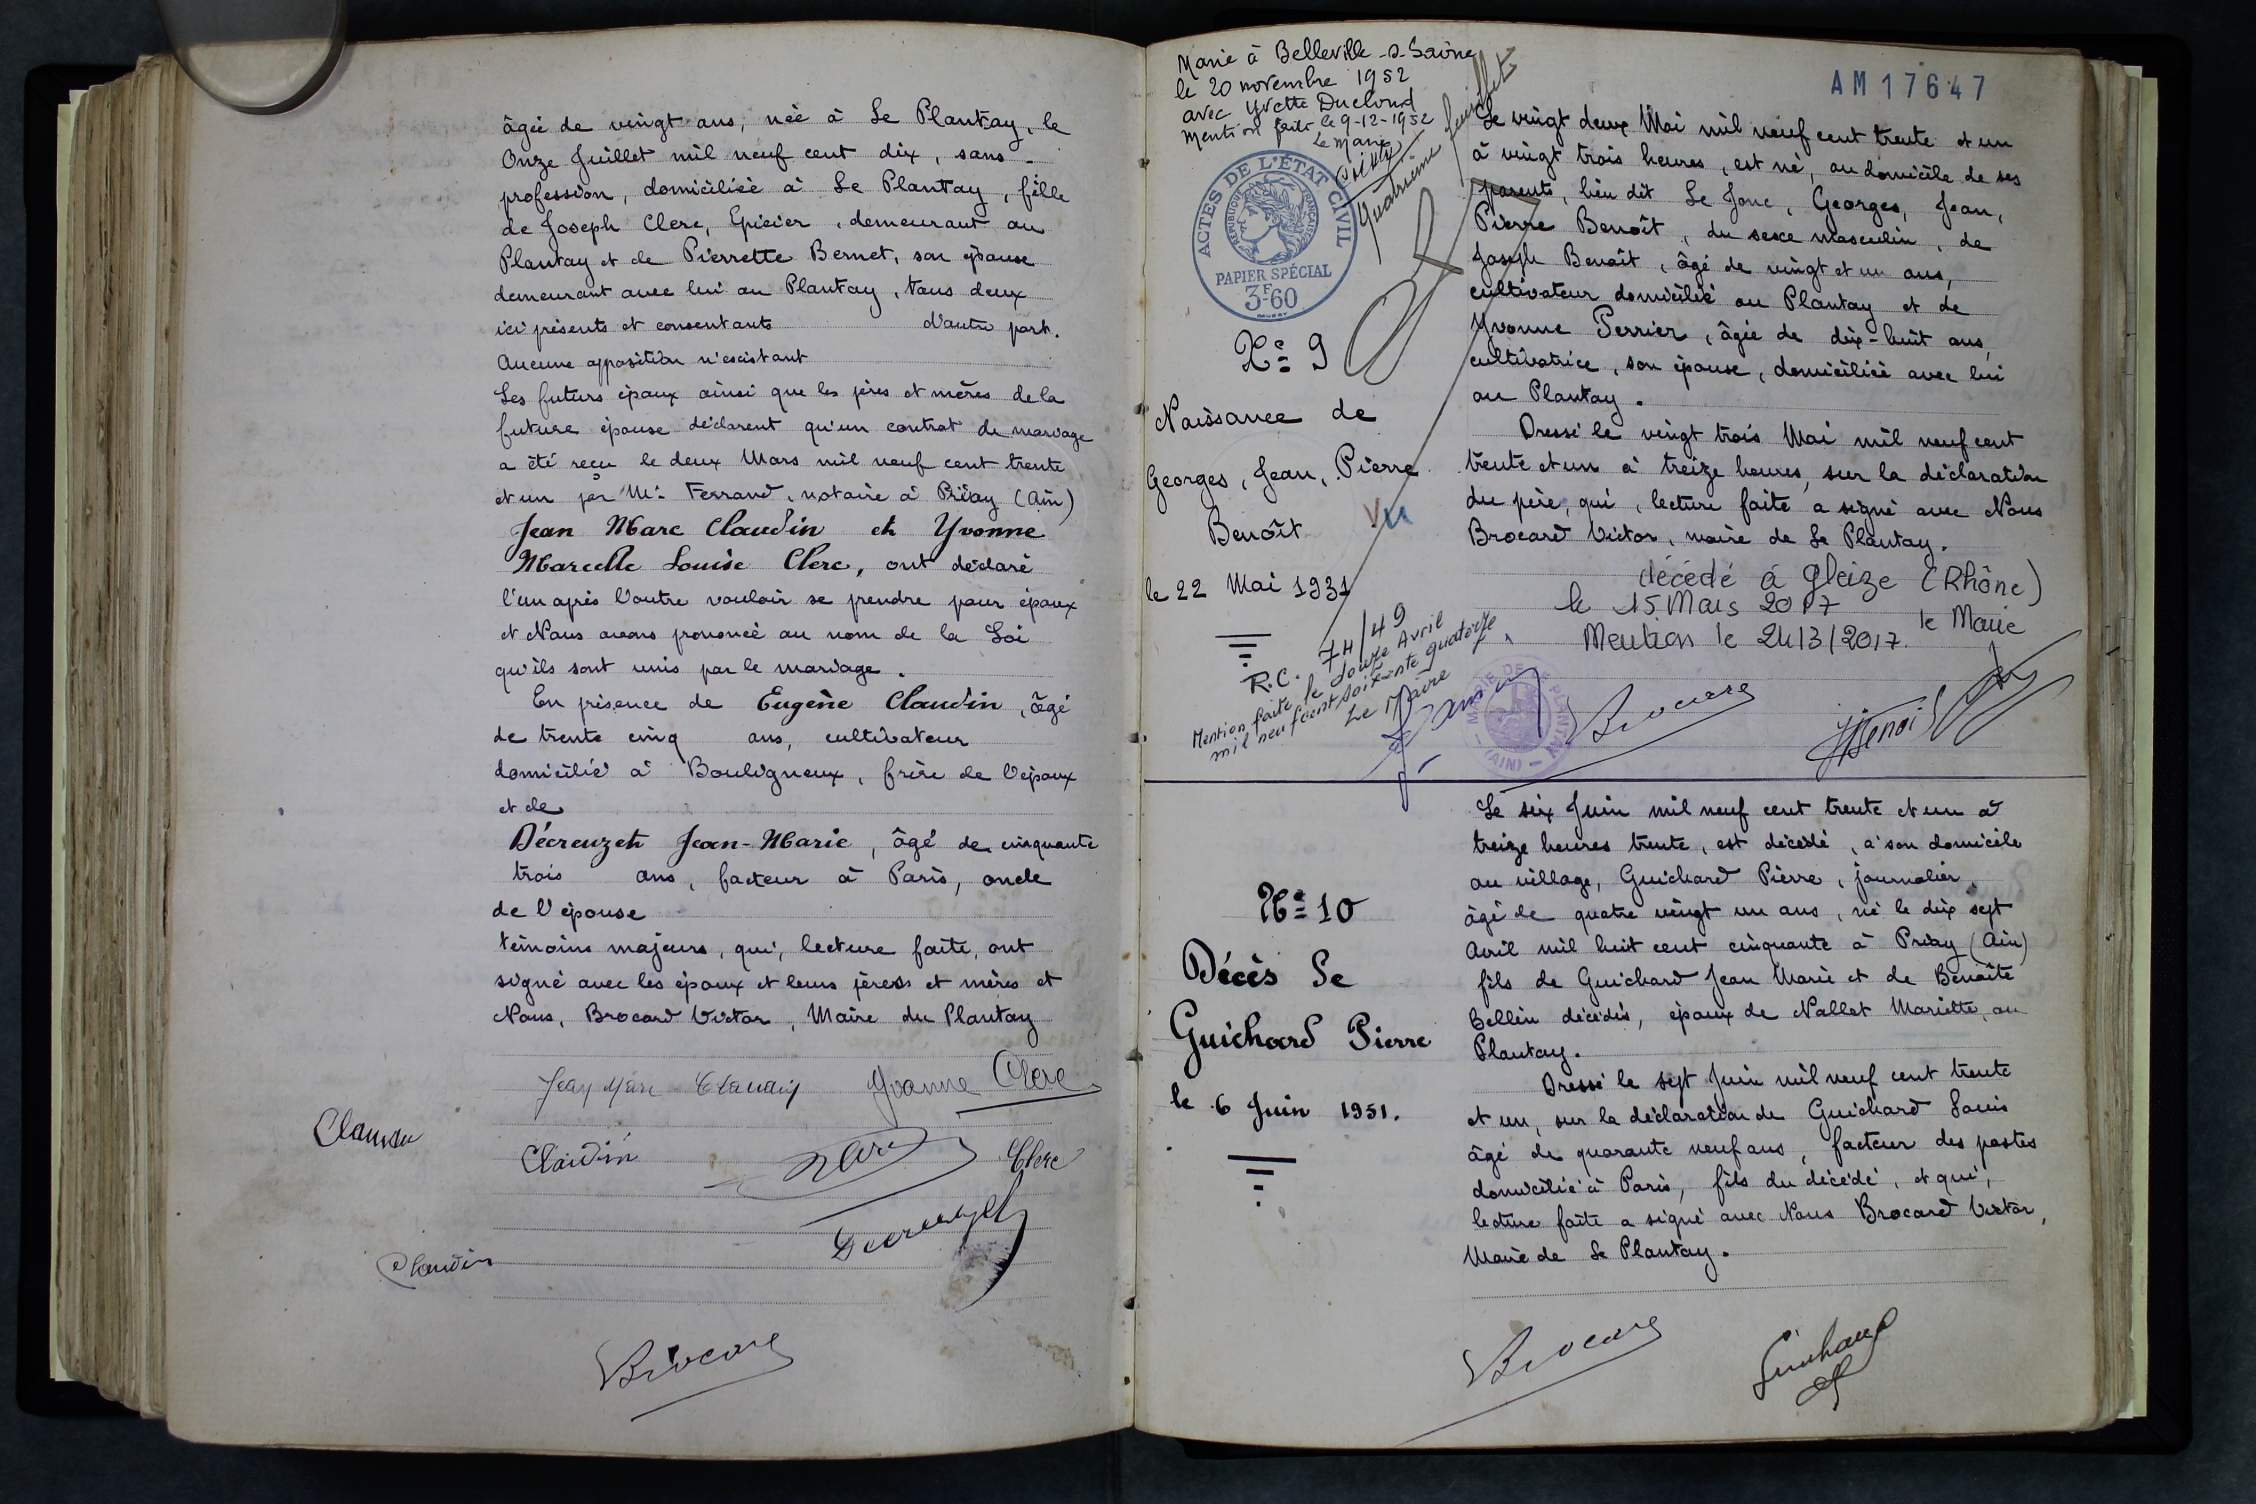 âgée de vingt ans, née à Le Plantay, le
Onze Juillet mil neuf cent dix, sans
profession, domiciliée à Le Plantay, fille
de Joseph Clerc, Epicier, demeurant au
Plantay et de Pierrette Bernet, son épouse
demeurant avec lui au Plantay, tous deux
ici présents et consentants d'autre part.
Aucune opposition n'existant
Les futurs époux ainsi que les pères et mères de la
future épouse déclarent qu'un contrat de mariage
a été reçu le deux Mars mil neuf cent trente
et un par Me Ferrand, notaire à Priay (Ain)
Jean Marc Claudin et Yvonne
Marcelle Louise Clerc, ont déclaré
l'un après l'autre vouloir se prendre pour époux
et Nous avons prononcé au nom de la Loi
qu'ils sont unis par le mariage.
En présence de Eugène Claudin, âgé
de trente cinq ans, cultivateur
domicilié à Bouligneux, frère de l'époux
et de
Décreuzet Jean-Marie, âgé de cinquante
trois ans, facteur à Paris, oncle
de l'épouse
témoins majeurs, qui, lecture faite, ont
signé avec les époux et leurs pères et mères et
Nous, Brocard Victor, Maire du Plantay
Jean Marc Claudin Yvonne Clerc
Claudin Clerc
Claudin
Brocard
Marié à Belleville-s-Saône
le 20 novembre 1952
avec Yvette Ducloud
Mention faite le 9-12-1952
Le Maire
Quatrième feuillet
ACTES DE L'ÉTAT CIVIL
RÉPUBLIQUE FRANÇAISE
PAPIER SPÉCIAL
3F60
AM17647
No 9
Naissance de
Georges, Jean, Pierre
Benoît
Vu
le 22 Mai 1931
R.C. 74/49
Mention faite le douze Avril
mil neuf cent soixante quatorze
Le Maire
Le vingt deux Mai mil neuf cent trente et un
à vingt trois heures, est né, au domicile de ses
parents, lieu dit Le Jonc, Georges, Jean,
Pierre Benoît, du sexe masculin, de
Joseph Benoît, âgé de vingt et un ans,
cultivateur domicilié au Plantay et de
Yvonne Perrier, âgée de dix-huit ans,
cultivatrice, son épouse, domiciliée avec lui
au Plantay.
Dressé le vingt trois Mai mil neuf cent
trente et un à treize heures, sur la déclaration
du père, qui, lecture faite a signé avec Nous
Brocard Victor, maire de Le Plantay.
décédé à Gleize (Rhône)
le 15 Mars 2017
Mention le 24/3/2017. le Maire
MAIRIE DE LE PLANTAY (AIN)
Brocard
JBenoit
No 10
Décès de
Guichard Pierre
le 6 Juin 1931.
Le six Juin mil neuf cent trente et un à
treize heures trente, est décédé, à son domicile
au village, Guichard Pierre, journalier,
âgé de quatre vingt un ans, né le dix sept
Avril mil huit cent cinquante à Priay (Ain)
fils de Guichard Jean Marie et de Benoîte
Bellin décédés, époux de Nallet Mariette, au
Plantay.
Dressé le sept Juin mil neuf cent trente
et un, sur la déclaration de Guichard Louis
âgé de quarante neuf ans, facteur des postes
domicilié à Paris, fils du décédé, et qui,
lecture faite a signé avec Nous Brocard Victor,
Maire de Le Plantay.
Brocard
Guichard